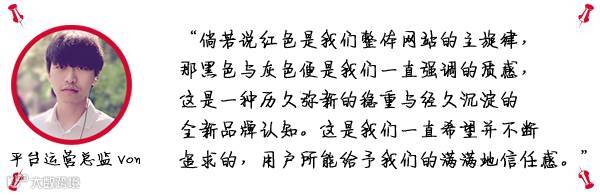 “倘若说红色是我们整体网站的主旋律，
那黑色与灰色便是我们一直强调的质感，
这是一种历久弥新的稳重与经久沉淀的
全新品牌认知。这是我们一直希望并不断
追求的，用户所能给予我们的满满地信任感。”
平台运营总监 Von